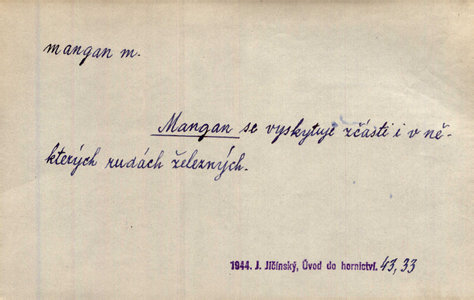 mangan m.
Mangan se vyskytuje zčásti i v ně-
kterých rudách železných.
1944. J. Jičínský, Úvod do hornictví. 43,33